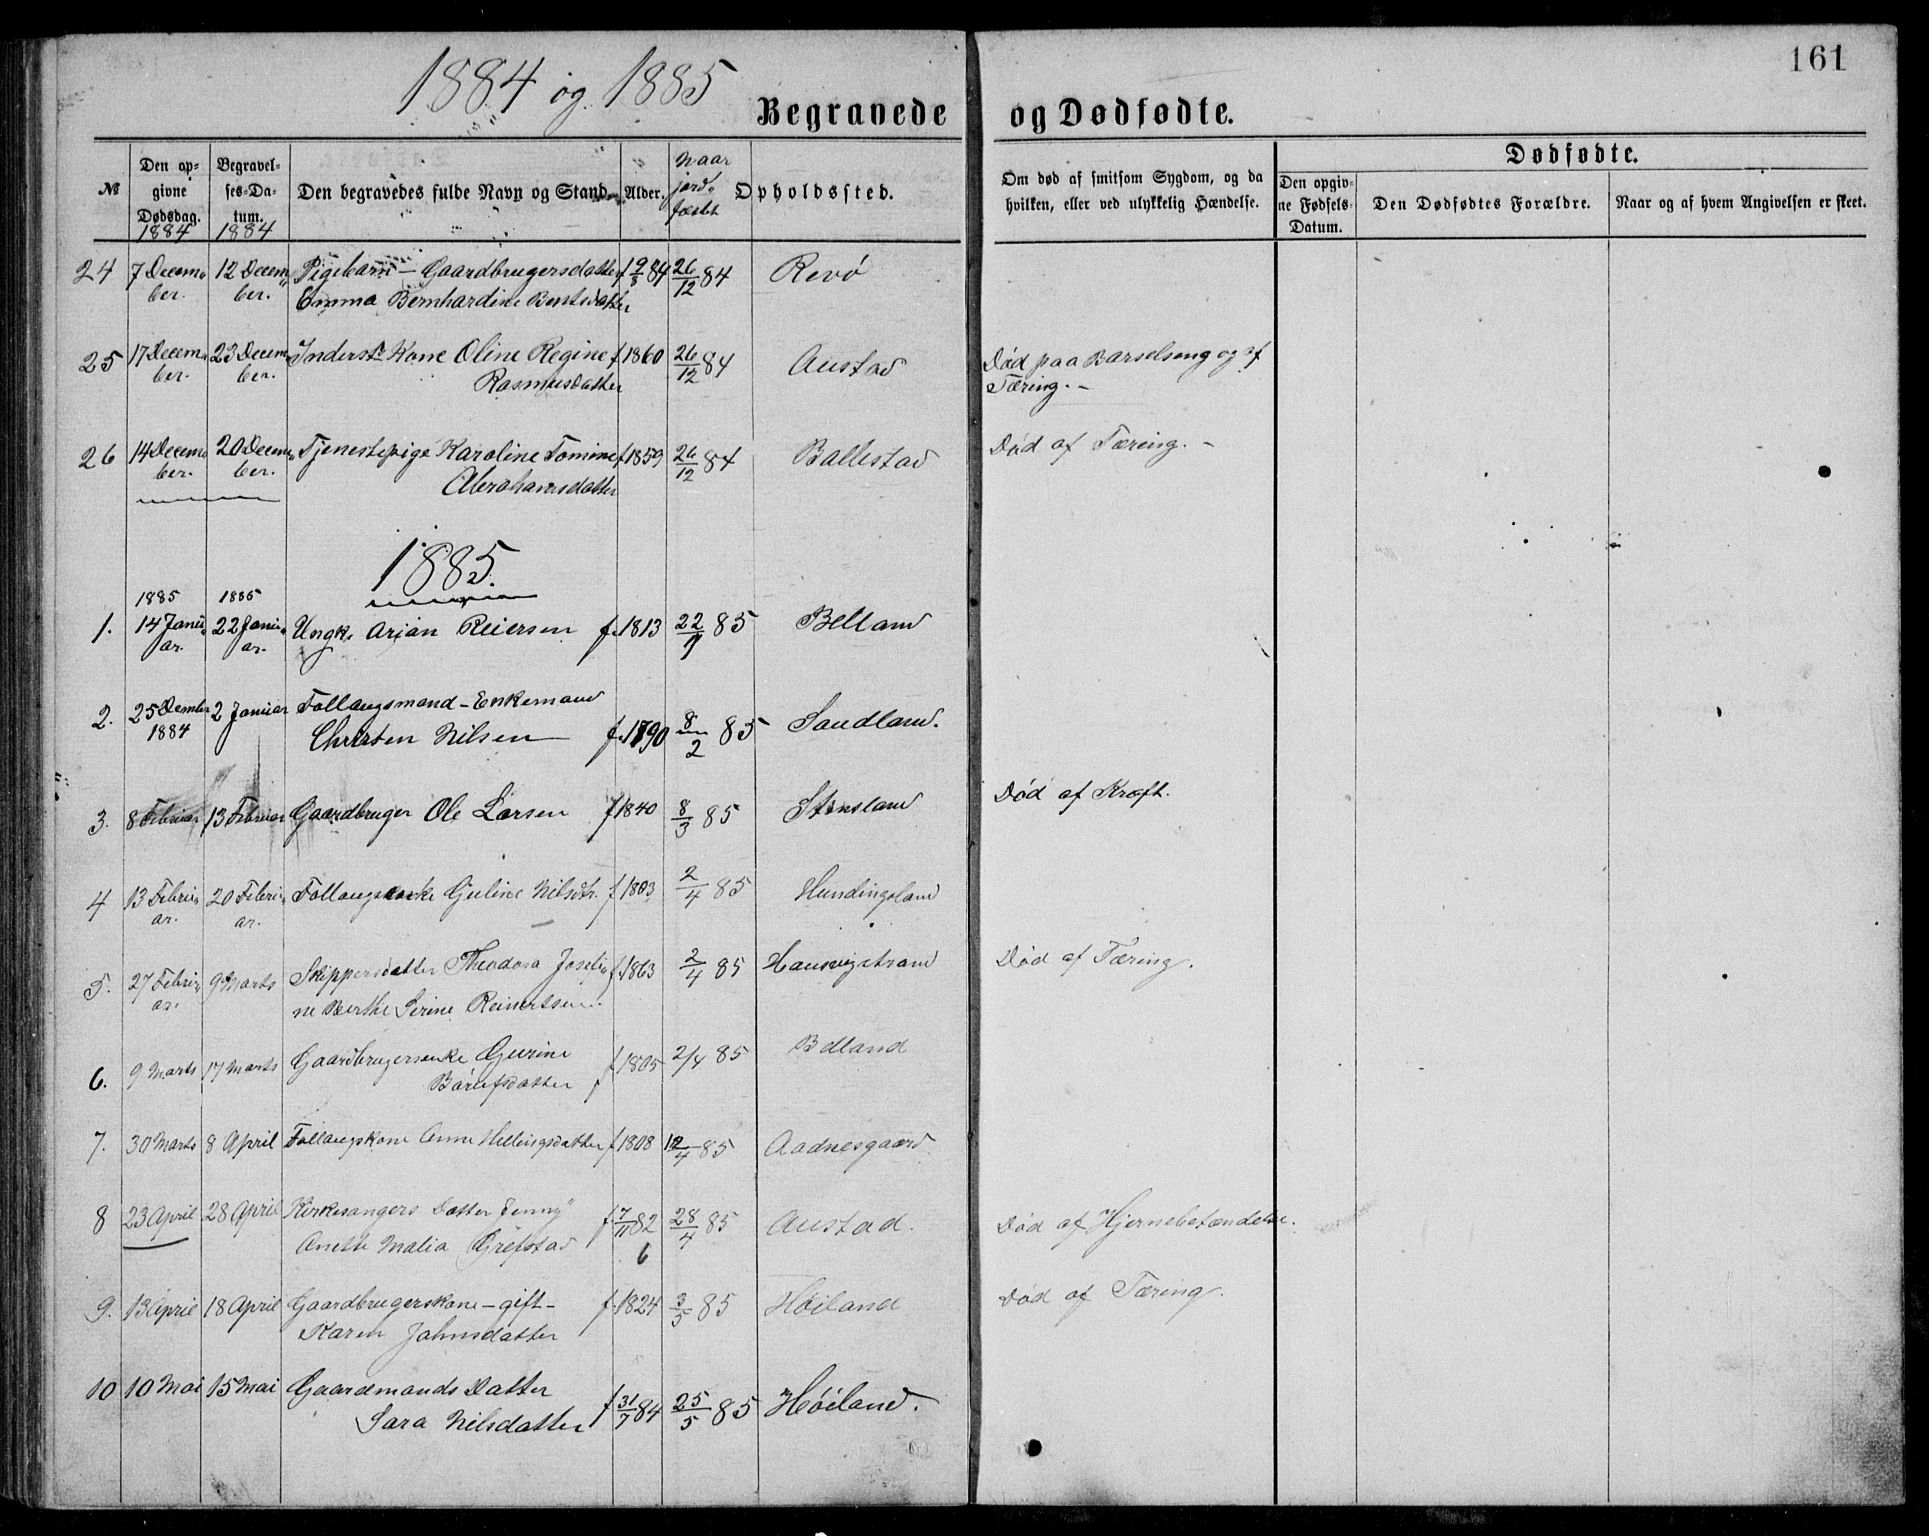 1884 og 1885
161
Begravede og Dødfødte.
№
Den opgivne Dødsdag. 1884
Begravelses-Datum. 1884
Den begravedes fulde Navn og Stand.
Alder.
Naar jordfæstet
Opholdssted.
Om død af smitsom Sygdom, og da hvilken, eller ved ulykkelig Hændelse.
Dødfødte.
Den opgivne Fødsels-Datum.
Den Dødfødtes Forældre.
Naar og af hvem Angivelsen er skeet.
24 7 December. 12 December. Pigebarn - Gaardbrugersdatter f 9/3 84 26/12 84 Revø
Emma Bernhardine Berntsdatter
25 17 December. 23 December. Inderst Kone Oline Regine f 1860 26/12 84 Austad Død paa Barselseng og af
Rasmusdatter Tæring. -
26 14 December. 20 December. Tjenestepige Karoline Tomine f 1859 26/12 84 Ballestad Død af Tæring. -
Abrahamsdatter
1885.
1885 1885
1. 14 Januar. 22 Januar. Ungk. Arian Reiersen f. 1813 22/1 85 Belland
2. 25 December 1884 2 Januar Follaugsmand - Enkemand
Christen Nilsen f. 1790 8/2 85 Sandland.
3. 8 Februar 13 Februar Gaardbruger Ole Larsen f 1840 8/3 85 Stensland Død af Kræft.
4 13 Februar. 20 Februar. Follaugsenke Guline Nilsdtr. f 1803 2/4 85 Hundingsland
5. 27 Februar. 9 Marts Skippersdatter Theodora Joseli- f. 1863 2/4 85 Hausvigstrand Død af Tæring.
ne Berthe Serine Reinertsen.
6. 9 Marts 17 Marts Gaardbrugersenke Gurine f 1805 2/4 85 Belland
7. 30 Marts 8 April Follaugskone Anne Hellingsdatter f 1808 12/4 85 Aadnesgaard
8 23 April 28 April Kirkesangers Datter Jenny f. 7/11 82 28/4 85 Austad. Død af Hjernebetændelse.
Anette Malia Grefstad 6
9. 13 April 18 April Gaardbrugerskone - gift - f. 1824 3/5 85 Høiland Død af Tæring.
Karen Jahnsdatter
10 10 Mai 15 Mai Gaardmands Datter f 31/7 84 25/5 85 Høiland.
Sara Nilsdatter